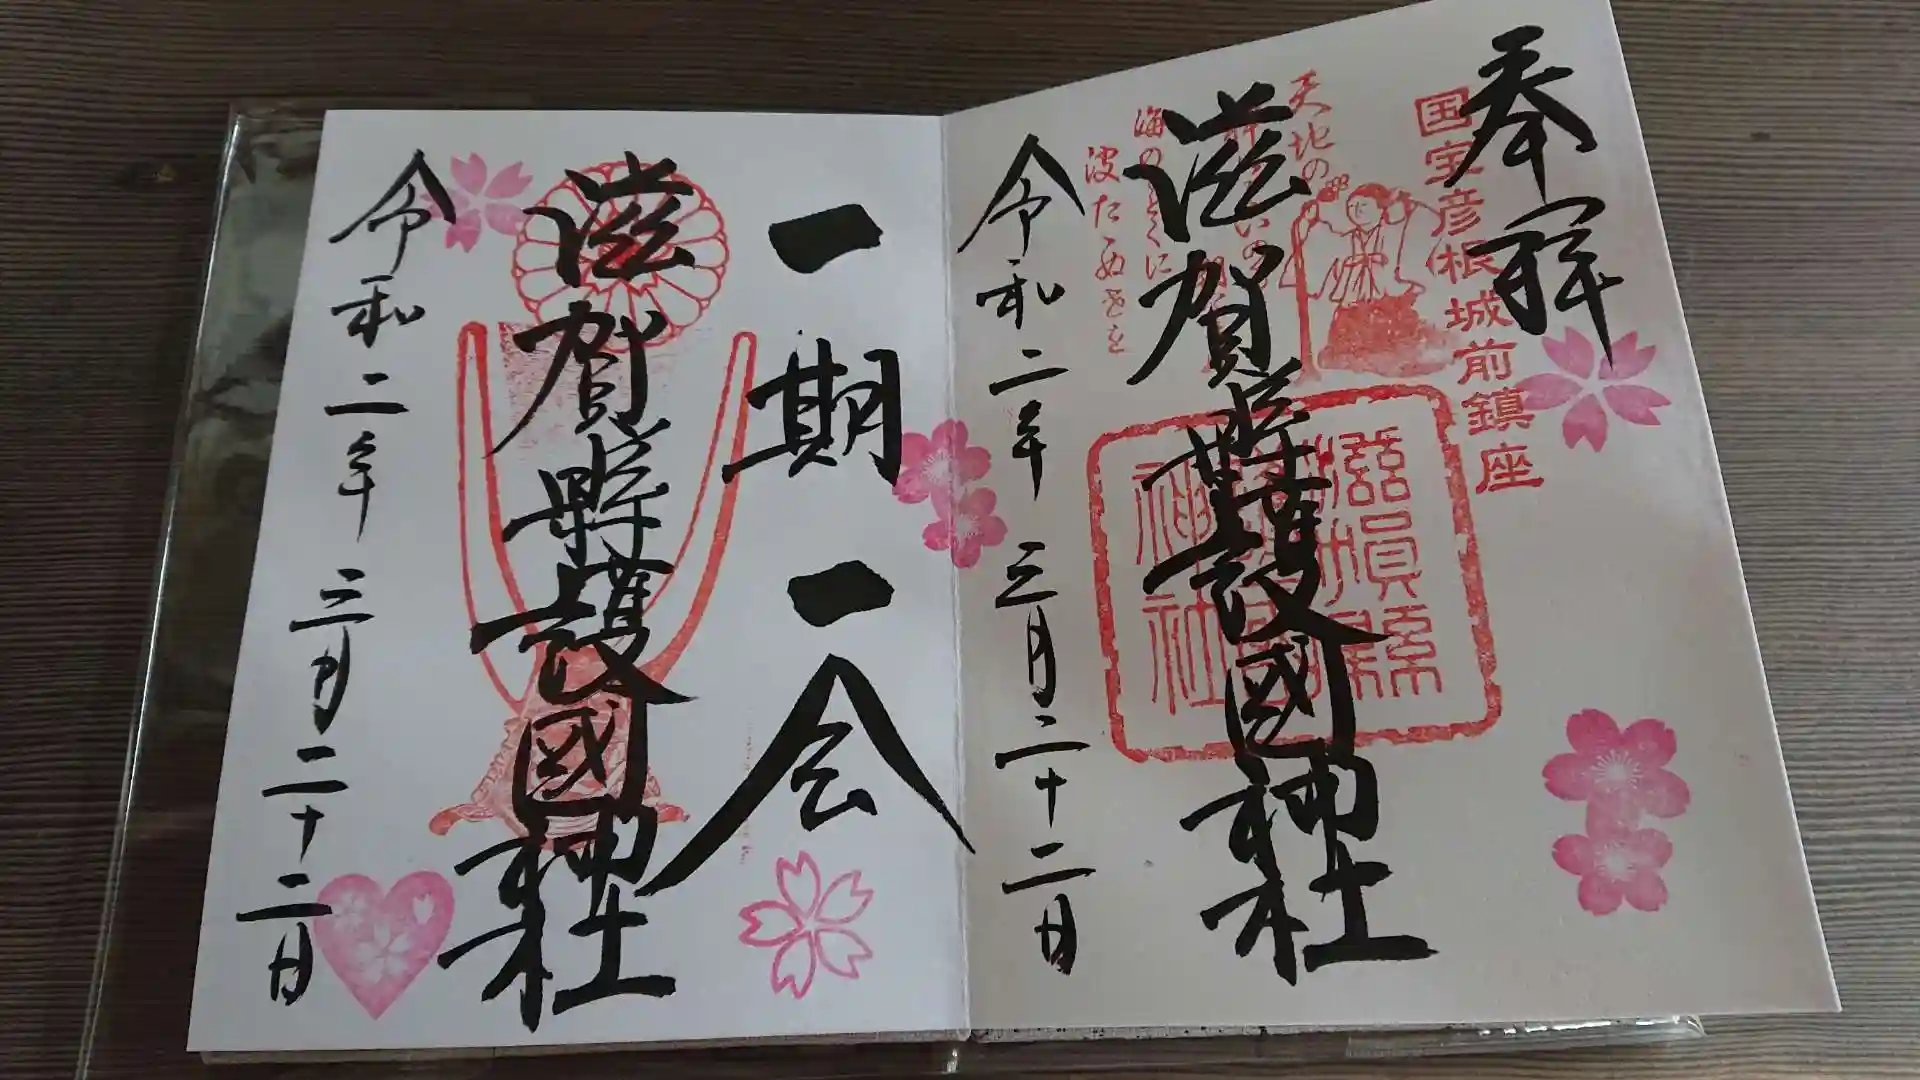 奉拝
国宝彦根城前鎮座
天地の
海の
波たゝぬ世を
滋賀縣護國神社
滋賀縣護國神社
令和二年三月二十二日
一期一会
滋賀縣護國神社
令和二年三月二十二日